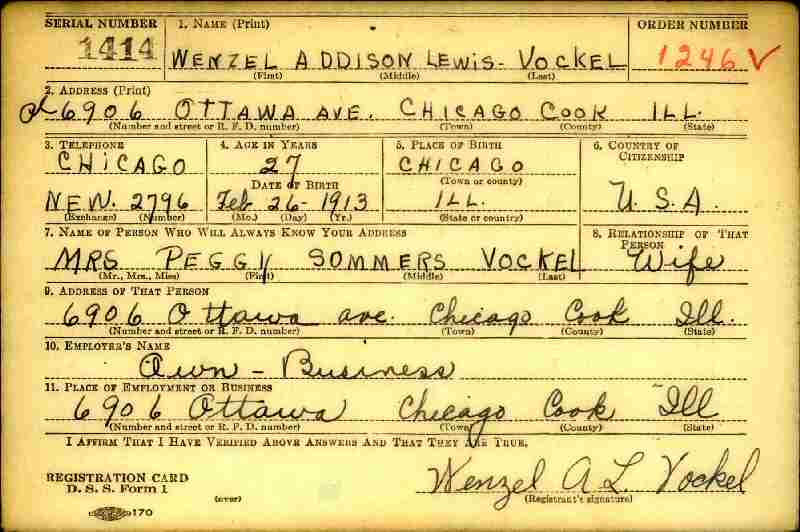 SERIAL NUMBER 1. NAME (Print) ORDER NUMBER
1414 WENZEL ADDISON LEWIS- VOCKEL 1246 V
(First) (Middle) (Last)
2. ADDRESS (Print)
6906 OTTAWA AVE. CHICAGO COOK ILL.
(Number and street or R. F. D. number) (Town) (County) (State)
3. TELEPHONE 4. AGE IN YEARS 5. PLACE OF BIRTH 6. COUNTRY OF CITIZENSHIP
CHICAGO 27 CHICAGO
DATE OF BIRTH (Town or county)
NEW. 2796 Feb 26- 1913 ILL. U. S. A.
(Exchange) (Number) (Mo.) (Day) (Yr.) (State or country)
7. NAME OF PERSON WHO WILL ALWAYS KNOW YOUR ADDRESS 8. RELATIONSHIP OF THAT PERSON
MRS PEGGY SOMMERS VOCKEL Wife
(Mr., Mrs., Miss) (First) (Middle) (Last)
9. ADDRESS OF THAT PERSON
6906 Ottawa ave. Chicago Cook Ill.
(Number and street or R. F. D. number) (Town) (County) (State)
10. EMPLOYER'S NAME
Own - Business
11. PLACE OF EMPLOYMENT OR BUSINESS
6906 Ottawa Chicago Cook Ill
(Number and street or R. F. D. number) (Town) (County) (State)
I AFFIRM THAT I HAVE VERIFIED ABOVE ANSWERS AND THAT THEY ARE TRUE.
REGISTRATION CARD Wenzel A L Vockel
D. S. S. Form 1 (over) (Registrant's signature)
170